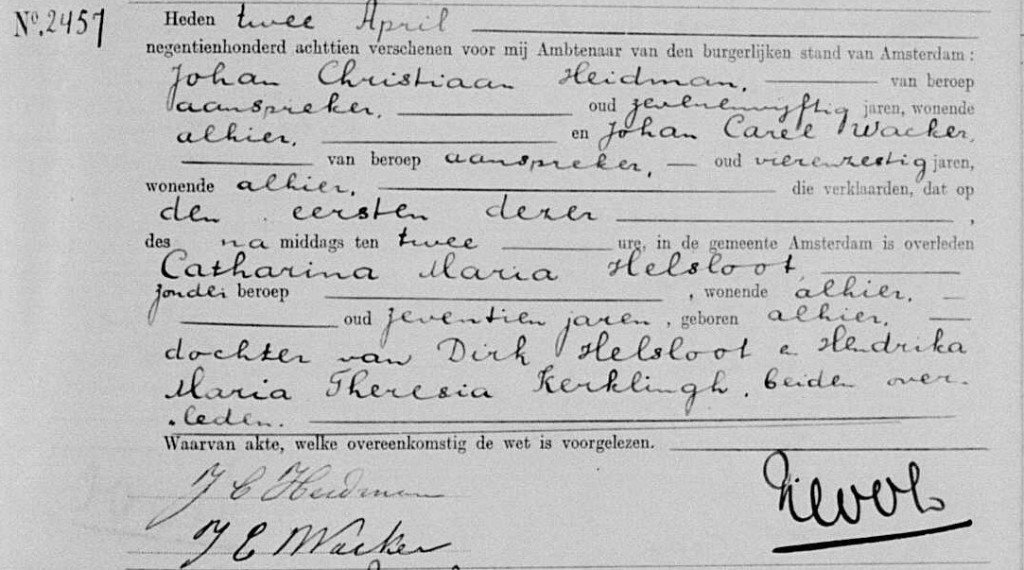 No. 2457 Heden twee April
negentienhonderd achttien verschenen voor mij Ambtenaar van den burgerlijken stand van Amsterdam :
Johan Christiaan Heidman, van beroep
aanspreker, oud zevenenvijftig jaren, wonende
alhier, en Johan Carel Wacker,
van beroep aanspreker, oud vierenzestig jaren,
wonende alhier, die verklaarden, dat op
den eersten dezer ,
des na middags ten twee ure, in de gemeente Amsterdam is overleden
Catharina Maria Helsloot,
zonder beroep , wonende alhier,
oud zeventien jaren , geboren alhier,
dochter van Dirk Helsloot e Hendrika
Maria Theresia Kerklingh, beiden over-
leden.
Waarvan akte, welke overeenkomstig de wet is voorgelezen.
J C Heidman
J C Wacker